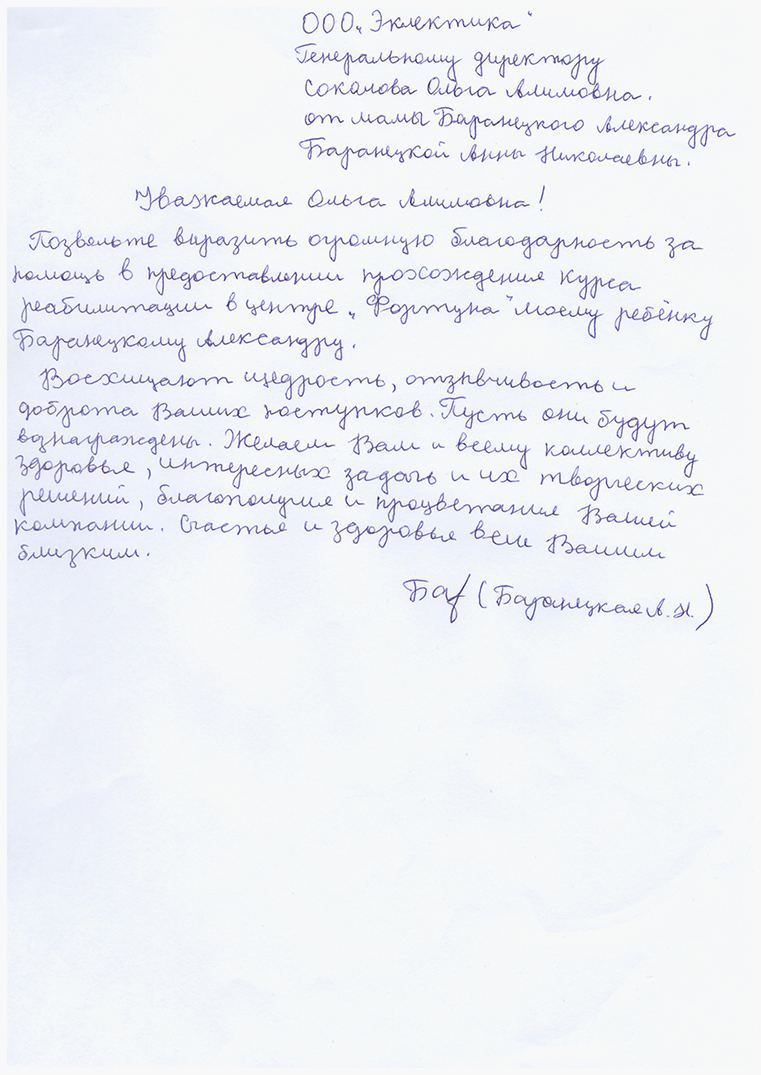 ООО „Эклектика"
Генеральному директору
Соколова Ольга Алимовна.
от мамы Баранецкого Александра
Баранецкой Анны Николаевны.
Уважаемая Ольга Алимовна!
Позвольте выразить огромную благодарность за
помощь в предоставлении прохождения курса
реабилитации в центре „Фортуна" моему ребёнку
Баранецкому Александру.
Восхищают щедрость, отзывчивость и
доброта Ваших поступков. Пусть они будут
вознаграждены. Желаем Вам и всему коллективу
здоровье, интересных задачь и их творческих
решений, благополучия и процветания Вашей
компании. Счастье и здоровья всем Вашим
близким.
Бар (Баранецкая А. Н.)